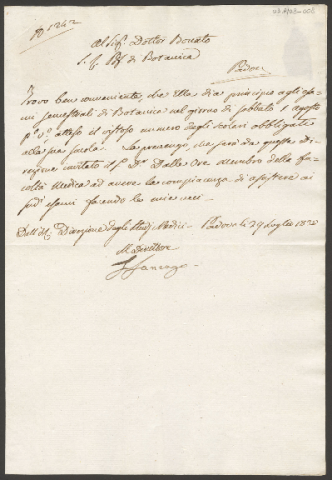 N° 1242
Al Sig.r Dottor Bonato
P. Prof. di Botanica
Padova
Trovo ben conveniente, che Ella dia principio agli esa-
mi semestrali di Botanica nel giorno di sabbato 1 agosto
p.° v.° atteso il numero degli scolari obbligati
alla sua scuola. La prevengo, che sarà da questa di-
rezione invitato il S.r D.r Dalle Ore membro della fa-
coltà Medica ad avere la compiacenza di assistere ai
esami facendo le mie veci.
Dall' Direzione degli Studj Medici Padova li 29 Luglio 18
Il Direttore